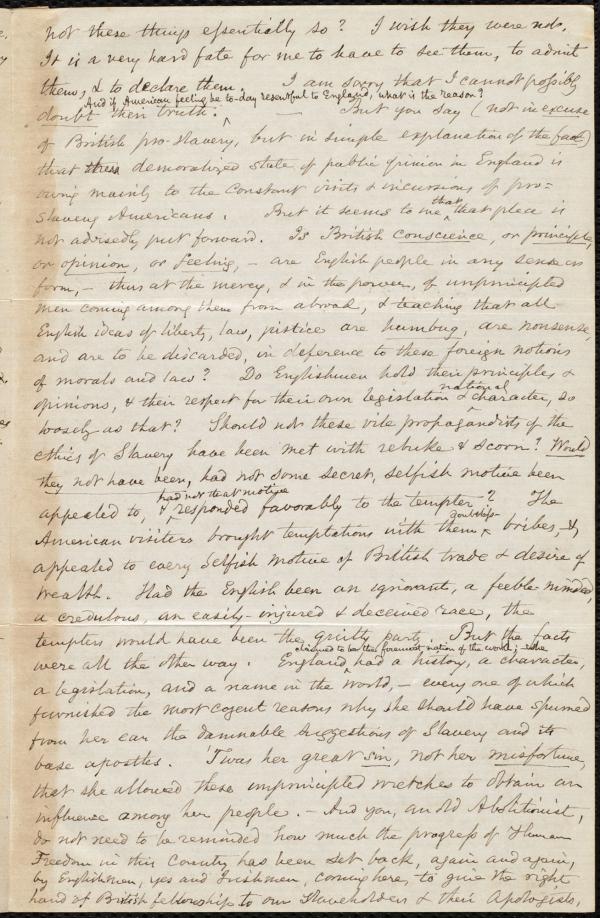 not these things essentially so? I wish they were not.
It is a very hard fate for me to have to see them, to admit
them, & to declare them. I am sorry that I cannot possibly
And if American feeling be to-day resentful to England, what is the reason?
doubt their truth. — But you say (not in excuse
of British pro-Slavery, but in simple explanation of the fact)
that this demoralized state of public opinion in England is
owing mainly to the constant visits & incursions of pro=
Slavery Americans. But it seems to me that that plea is
not advisedly put forward. Is British conscience, or principle,
or opinion, or feeling, – are English people in any sense or
form, – thus at the mercy, & in the power, of unprincipled
men coming among them from abroad, & teaching that all
English ideas of liberty, law, justice are humbug, are nonsense,
and are to be discarded, in deference to these foreign notions
of morals and laws? Do Englishmen hold their principles &
opinions, & their respect for their own legislation & national character, so
loosely as that? Should not these vile propagandists of the
ethics of Slavery have been met with rebuke & scorn? Would
they not have been, had not some secret, selfish motive been
appealed to, & had not that motive responded favorably to the tempter? The
American visiters brought temptations with them, doubtless – bribes, – &
appealed to every selfish motive of British trade & desire of
wealth. Had the English been an ignorant, a feeble-minded,
a credulous, an easily-injured & deceived race, the
tempters would have been the guilty party. But the facts
were all the other way. England claimed to be the foremost nation of the world; she had a history, a character,
a legislation, and a name in the world, – every one of which
furnished the most cogent reasons why she should have spurned
from her ear the damnable suggestions of Slavery and its
base apostles. 'Twas her great sin, not her misfortune,
that she allowed these unprincipled wretches to obtain an
influence among her people. – And you, an old Abolitionist,
do not need to be reminded how much the progress of Human
Freedom in this Country has been set back, again and again,
by Englishmen, yes and Irishmen, coming here, to give the right
hand of British fellowship to our Slaveholders & their Apologists,